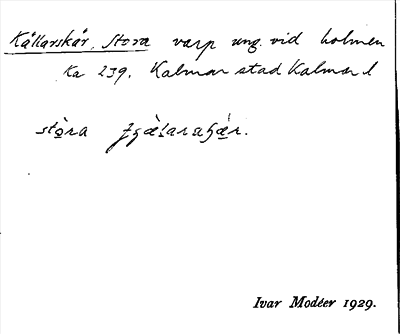 Kållarskär, Stora varp ung. vid holmen
Ka 239. Kalmar stad Kalmar l
stòra
Ivar Modéer 1929.